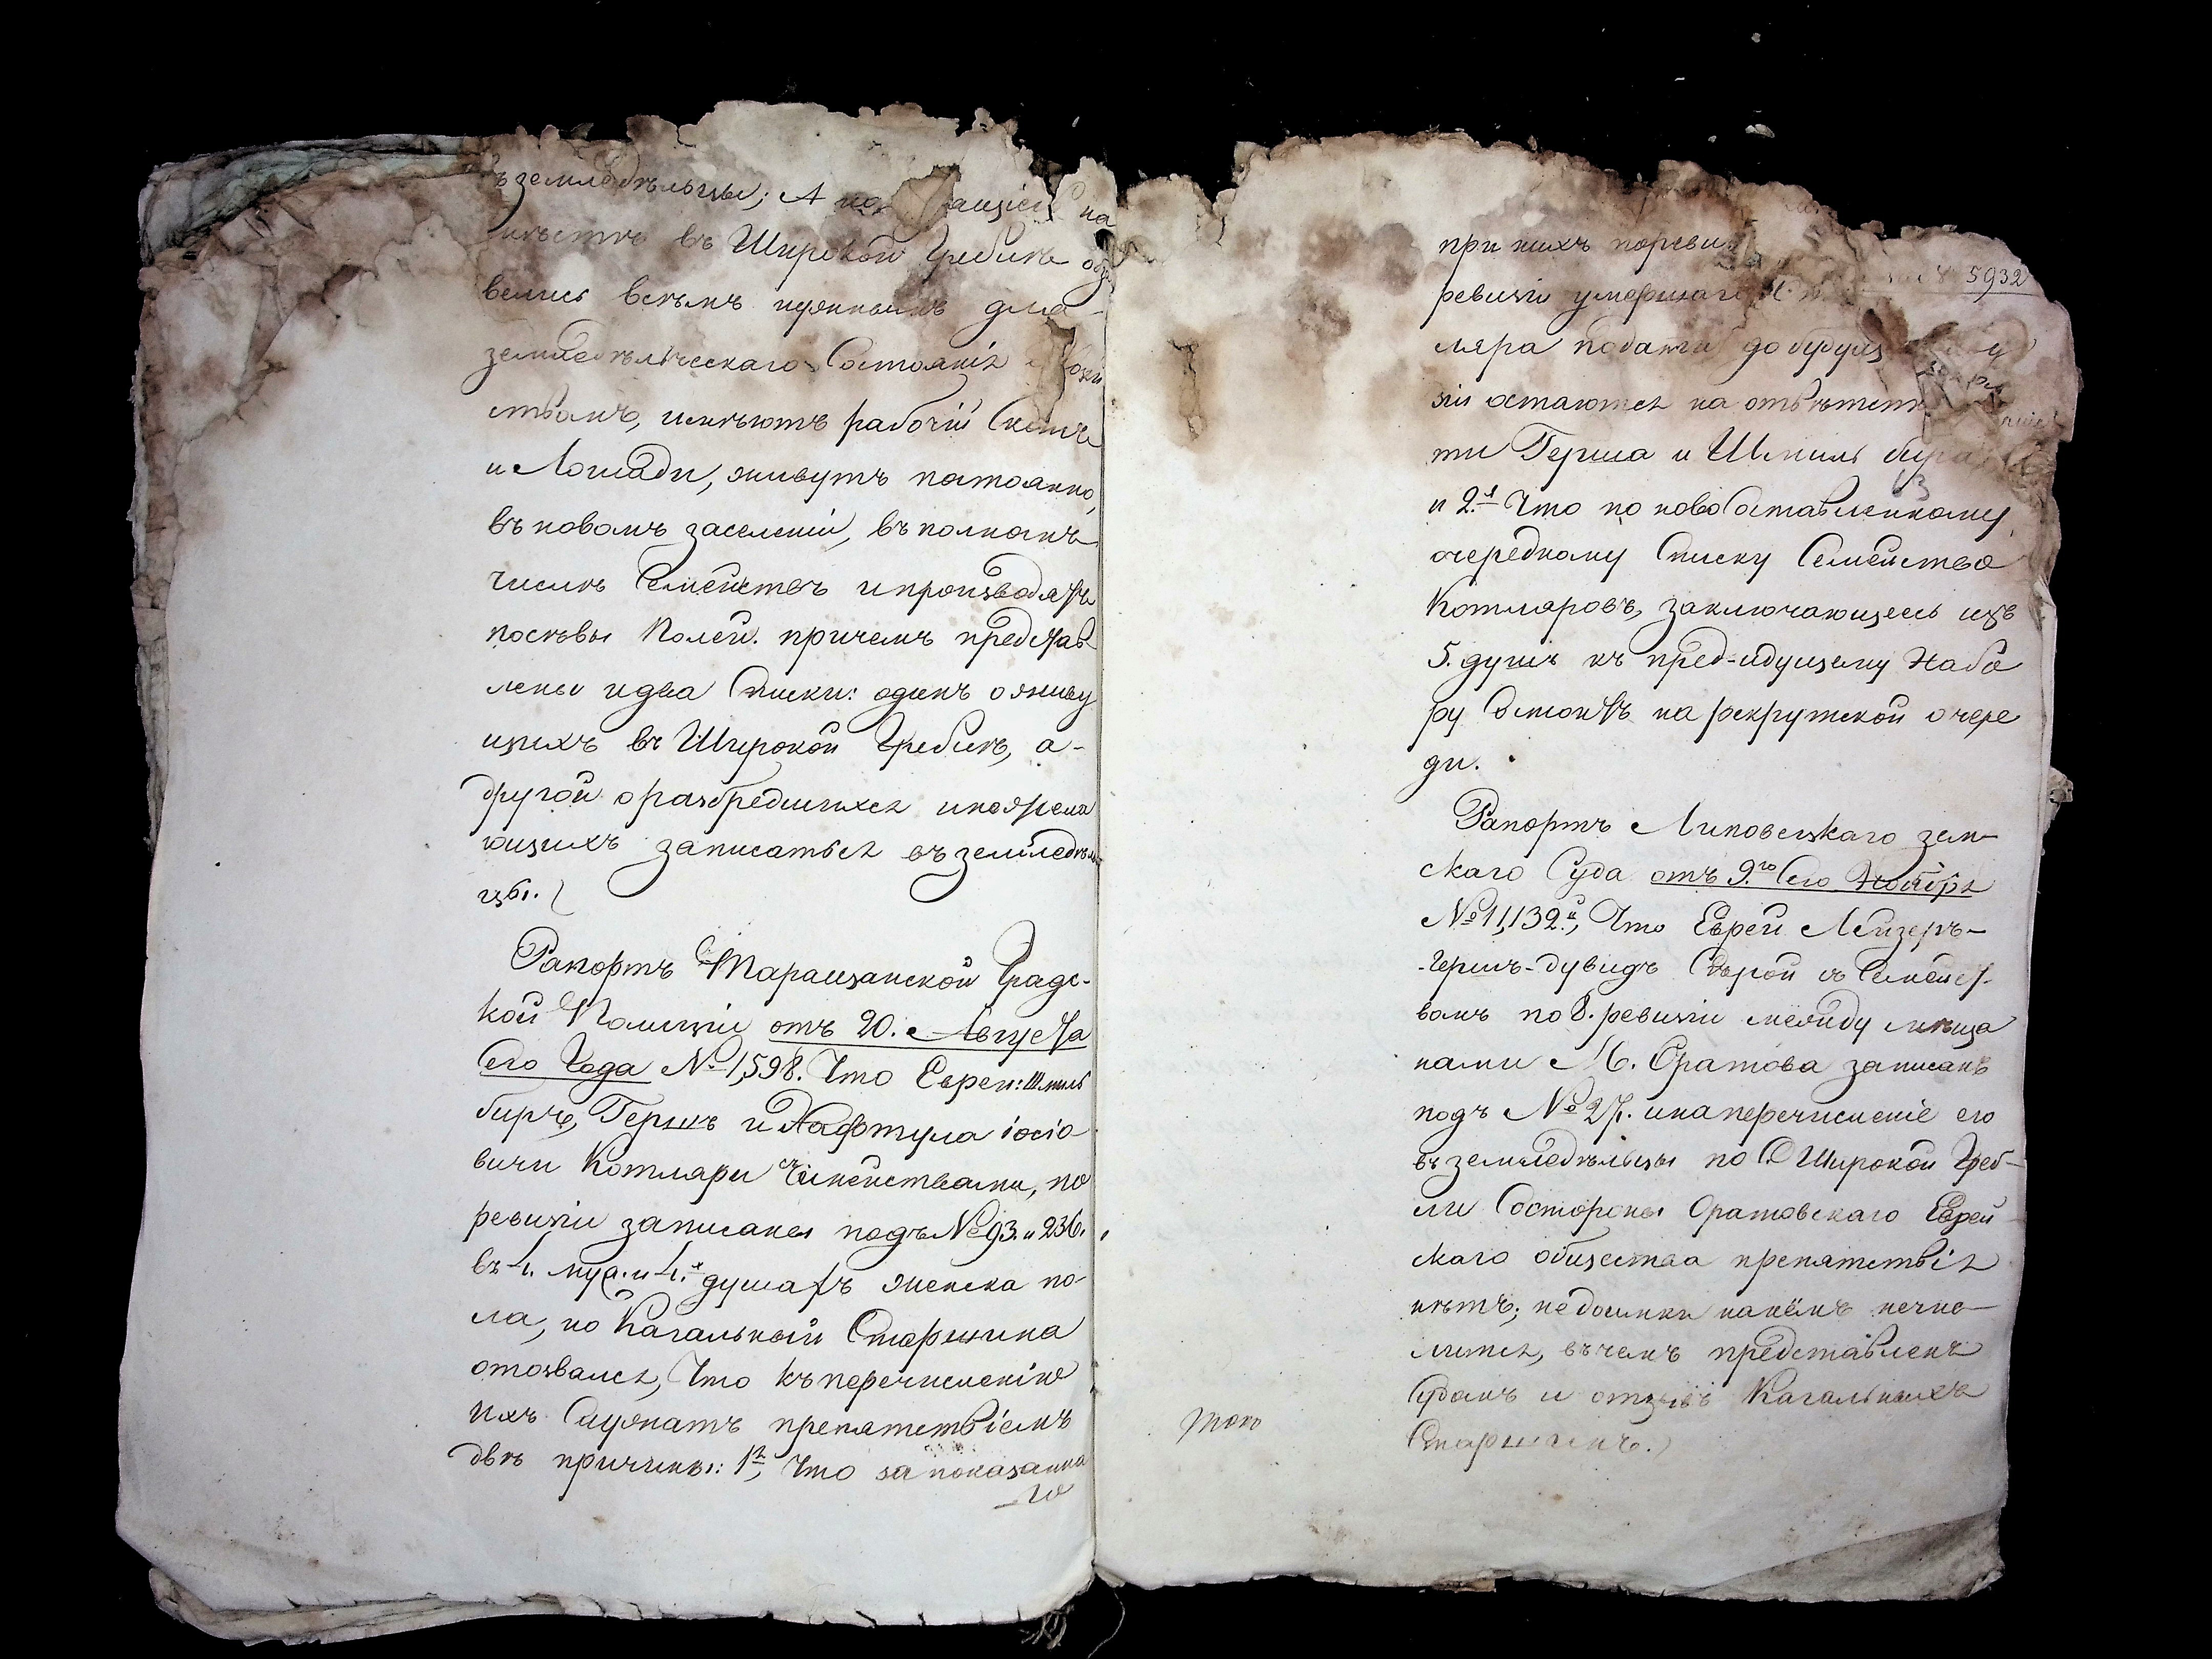 ъ земледѣльцы; А на
мѣстѣ въ Широкой Греблѣ об
велись всѣмъ нужнымъ для
земледѣльческаго Состоянія
ствомъ, имѣютъ рабочій Скотъ
и Лошади, живутъ постоянно,
въ новомъ заселеніи, въ полномъ
числѣ Семействъ и производятъ
посѣвы Полей. причемъ представ
лены и два Списки: одинъ о живу
щихъ въ Широкой Греблѣ, а-
другой о разбредшихся и нежела
ющихъ записаться въ земледѣль
цы.
Рапортъ Таращанской Градс-
кой Полиціи отъ 20. Августа
сего Года № 1,598. Что Евреи: Шмиль
биръ, Гершъ и Нафтула іосіо
вичи Котляри съ Семействами, по
ревизіи записаны подъ № 93. и 236.
въ 4. муж. и 4.х душахъ женска по-
ла, но Кагальный Старшина
отозвался, Что къ перечисленію
ихъ Служатъ препятствіемъ
двѣ причины: 1я, Что за показанна
го
при нихъ по реви
ревизіи умершаго
5932
ляра подати до будущ
зіи остаются на отвѣтст
ти Герша и Шмиль бира
63
и 2.я Что по новоСоставленному
очередному Списку Семейство
Котляровъ, заключающееся изъ
5. душъ къ пред-идущему Набо
ру Стоитъ на рекрутской очере
ди.
Рапортъ Липовецкаго зем-
скаго Суда отъ 9.го Сего Ноября
№ 11,132.й, Что Еврей Лейзеръ-
-Гершъ-дувидъ Сърой съ Семейст-
вомъ по 8. ревизіи между мѣща
нами М. Оратова записанъ
подъ № 27. и на перечисленіе его
въ земледѣльцы по С Широкой Греб-
ли Состороны Оратовскаго Еврей
скаго общества препятствія
нѣтъ; недоимки на нёмъ не чис-
лится, въ чемъ представленъ
Судомъ и отзывъ Кагальныхъ
Старшинъ.
того